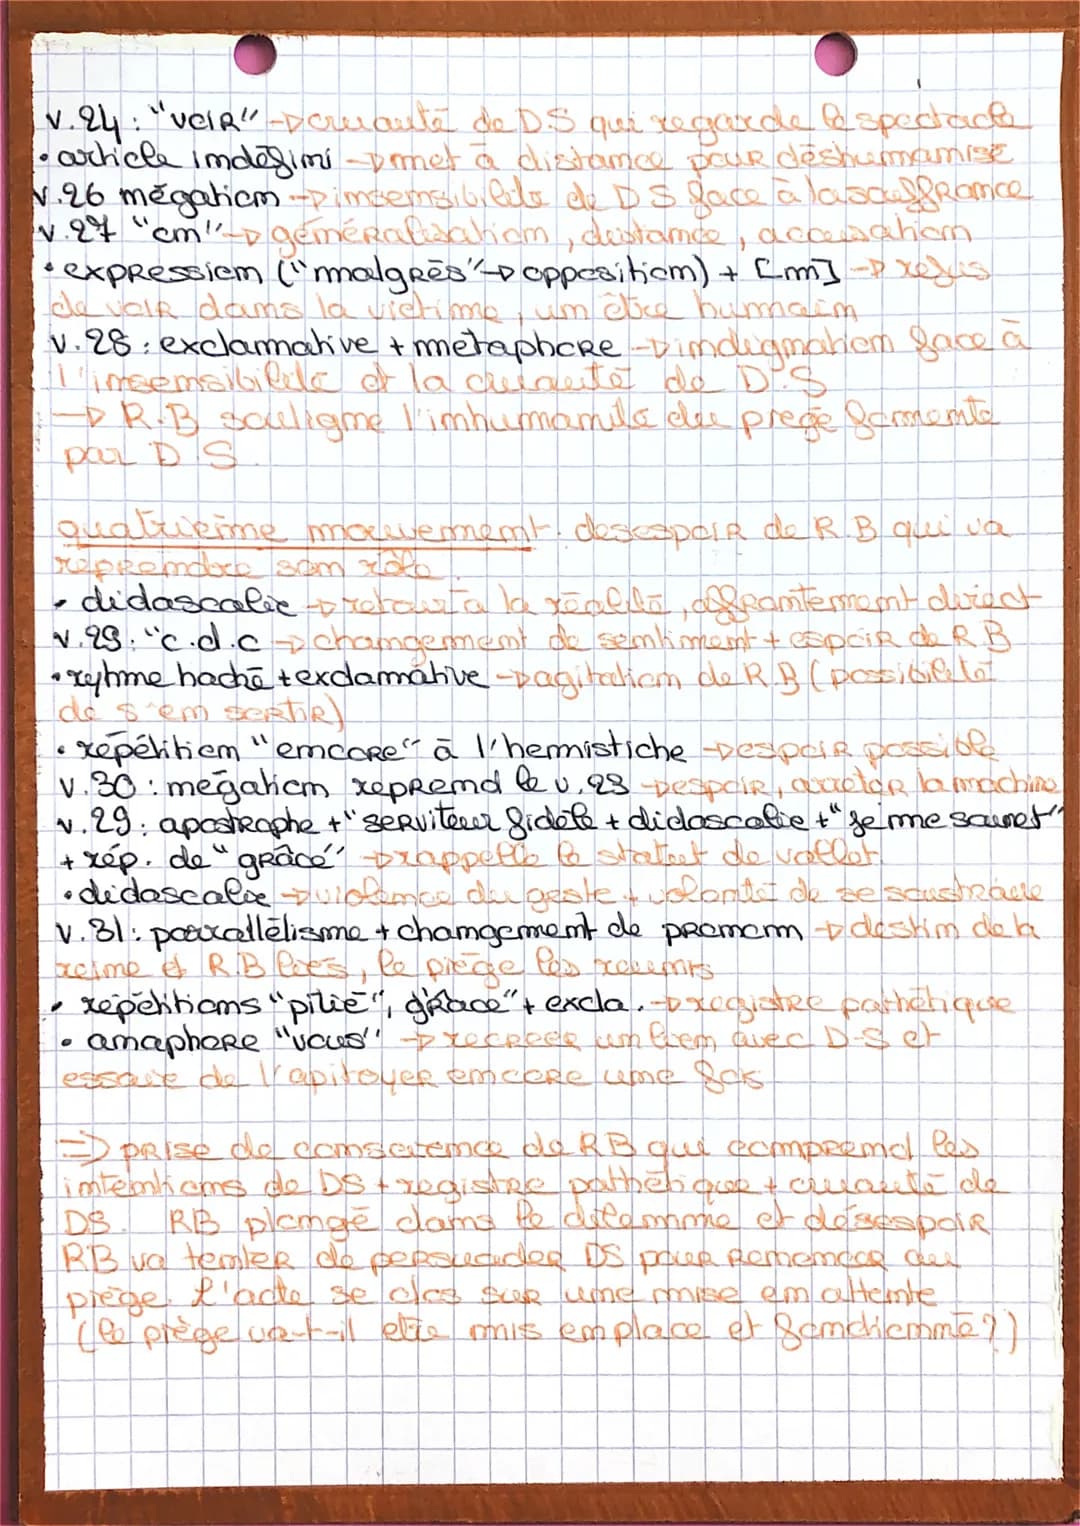 v.24 : "voir" → cruauté de D.S qui regarde le spectacle
• article indéfini → met à distance pour déshumanisé
v.26 négation → insensibilité de D S face à la souffrance
v.27 "on" → généralisation, distance, accusation
• expression ("malgrès" → opposition) + [m] → refus
de voir dans la victime, un être humain
v.28 : exclamative + métaphore → indignation face à
l'insensibilité et la cruauté de D.S
→ R.B souligne l'inhumanité du piège fomenté
par D S
quatrième mouvement : désespoir de R.B qui va
reprendre son rôle.
• didascalie → retour à la réalité, affrontement direct
v.29 : "c.d.c → changement de sentiment + espoir de R B
• rythme haché + exclamative → agitation de R B (possibilité
de s'en sortir)
• répétition "encore" à l'hémistiche → espoir possible
v.30 : négation reprend le v.29 → espoir, arreter la machine
v.29 : apostrophe + "serviteur fidèle + didascalie + "je me soumet"
+ rép. de "grâce" → rappelle le statut de vallet
• didascalie → violence du geste + volonté de se soustraire
v.31 : parallélisme + changement de pronom → destin de la
reine et R B liés, le piège les réunis
• répétitions "pitié", grâce" + excla. → registre pathétique
• anaphore "vous" → recréer un lien avec D-S et
essaie de l'apitoyer encore une fois
⇒ prise de conscience de R B qui comprend les
intentions de DS + registre pathétique + cruauté de
DS. RB plongé dans le dilemme et désespoir
RB va tenter de persuader DS pour renoncer au
piège. L'acte se clos sur une mise en attente
(le piège va-t-il etre mis en place et fonctionné?)